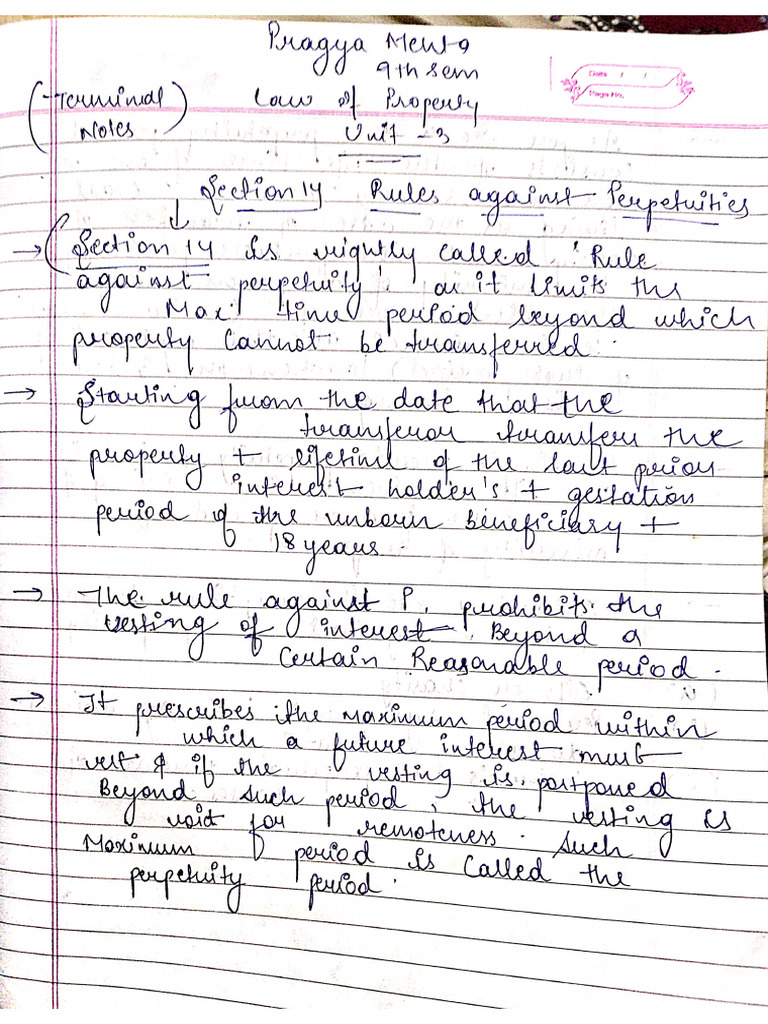 Pragya Mehta
9th sem
(Terminal Notes.)
Law of Property
Unit - 3
Date / /
Page No.
Section 14 Rules against Perpetuities
→ Section 14 is rightly called 'Rule
against perpetuity' as it limits the
Max. time period beyond which
property cannot be transferred.
→ Starting from the date that the
transferor transfers the
property + lifetime of the last prior
interest holder's + gestation
period of the unborn beneficiary +
18 years.
→ The rule against P. prohibits the
vesting of interest Beyond a
Certain Reasonable period.
→ It prescribes the maximum period within
which a future interest must
vest & if the vesting is postponed
Beyond such period, the vesting is
void for remoteness. Such
Maximum period is called the
perpetuity period.